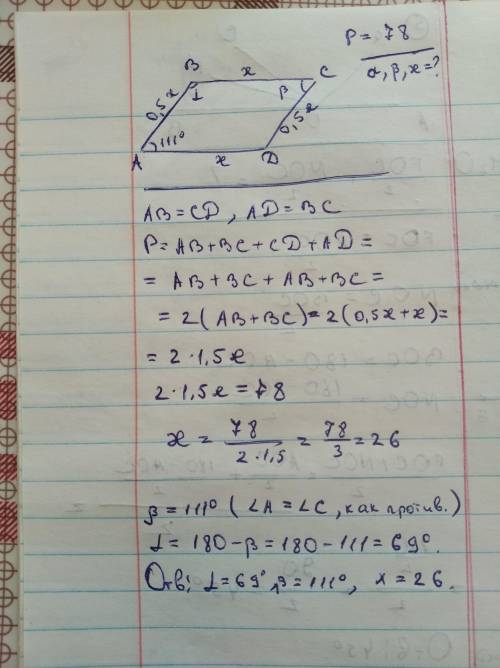 P = 78
α, β, x = ?
B x C
0,5x α β 0,5x
A 111° x D
AB = CD, AD = BC
P = AB + BC + CD + AD =
= AB + BC + AB + BC =
= 2(AB + BC) = 2(0,5x + x) =
= 2·1,5x
2·1,5x = 78
x = 78 / 2·1,5 = 78 / 3 = 26
β = 111° (∠A = ∠C, как против.)
α = 180 - β = 180 - 111 = 69°.
Отв: α = 69°, β = 111°, x = 26.